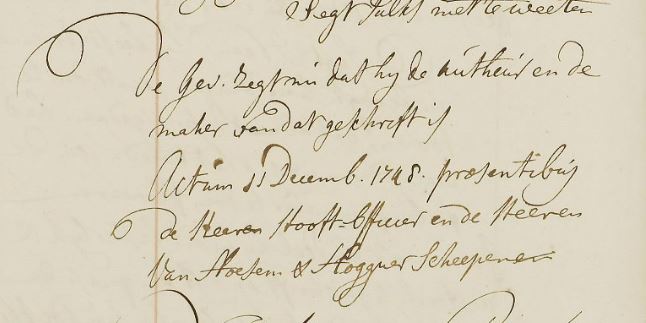 Zegt sulks niet te weeten
De Gev. zegt nu dat hy de autheur en de
maker van dat geschrift is
Actum 11 Decemb. 1748. præsentibus
de Heeren Hooft-Officier en de Heeren
Van Hoesem & Hogguer Scheepenen